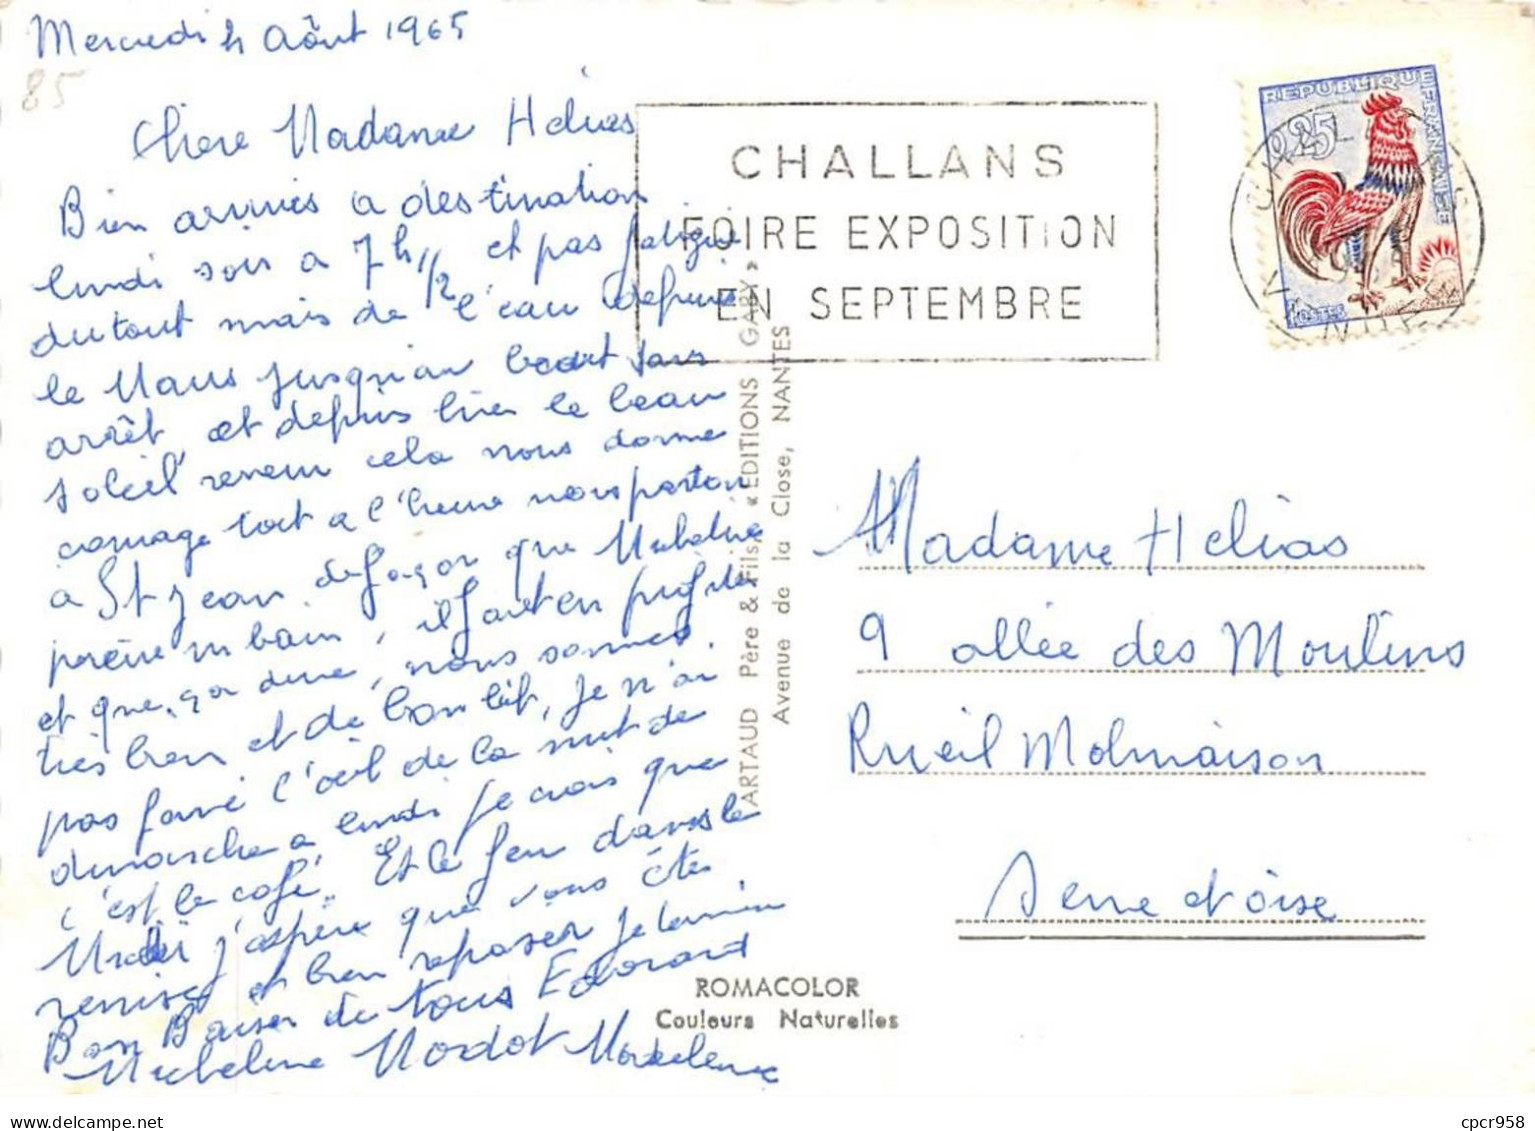 Mercredi 4 Août 1965
85
Chere Madame Helias
Bien arrivés a destination
lundi soir a 7 h 1/2 et pas fatigué
dutout mais de l'eau depuis
le Mans jusqu'au bout sans
arrêt, et depuis hier le beau
soleil revenu cela nous donne
courage tout a l'heure nous parton
a St Jean de façon que Micheline
prenne un bain, il faut en profiter
et que ça dure, nous sommes
très bien et de bon lit, Je n'ai
pas fermé l'œil de la nuit de
dimanche a lundi je crois que
c'est le café. Et le feu dans le
Midi j'espère que vous êtes
remise et bien reposer Je termine
Bon Baiser de tous Edouard
Micheline Nodot Madeleine
CHALLANS
FOIRE EXPOSITION
EN SEPTEMBRE
REPUBLIQUE FRANÇAISE
0,25
POSTES
CHALLANS
VENDEE
ARTAUD Père & Fils, «EDITIONS GABY»
Avenue de la Close, NANTES
Madame Helias
9 allée des Moulins
Rueil Malmaison
Seine et Oise
ROMACOLOR
Couleurs Naturelles
cpcr958